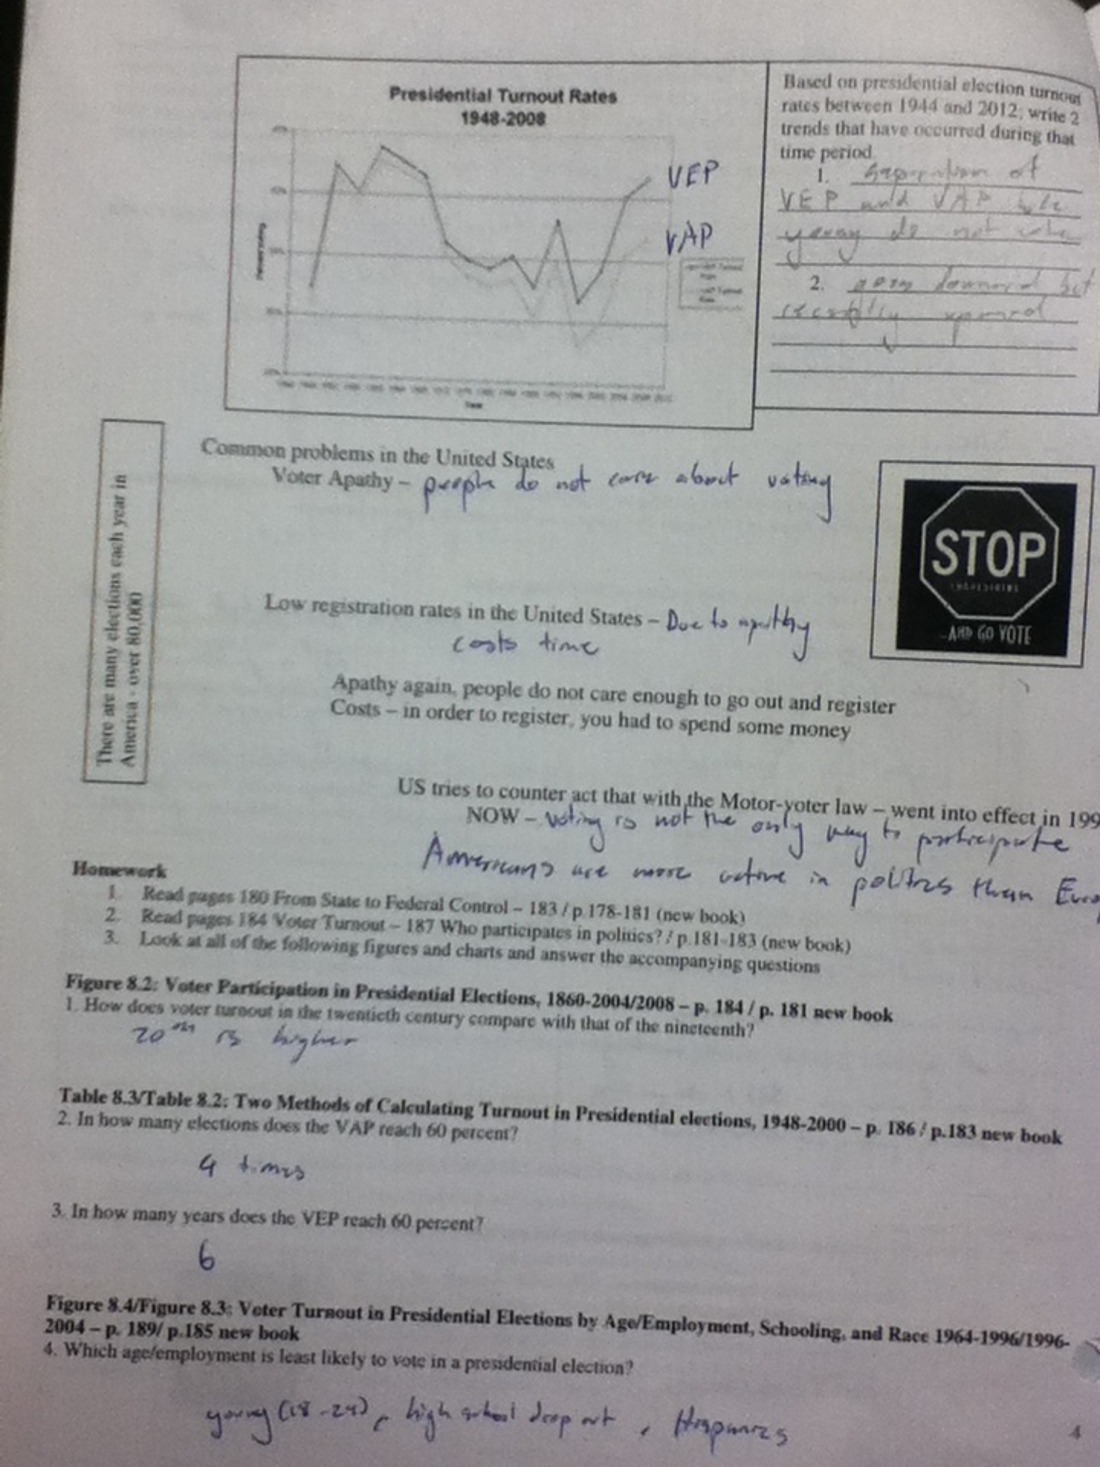 Presidential Turnout Rates
1948-2008
VEP
VAP
Year
Based on presidential election turnout
rates between 1944 and 2012, write 2
trends that have occurred during that
time period.
1. Separation of
VEP and VAP b/c
young do not vote
2. goes downward but
recently upward
Common problems in the United States
Voter Apathy – people do not care about voting
There are many elections each year in
America - over 80,000
STOP
...AND GO VOTE
Low registration rates in the United States – Due to apathy
costs time
Apathy again, people do not care enough to go out and register
Costs – in order to register, you had to spend some money
US tries to counter act that with the Motor-voter law – went into effect in 199
NOW – voting is not the only way to participate
Americans are more active in politics than Euro
Homework
1. Read pages 180 From State to Federal Control – 183 / p.178-181 (new book)
2. Read pages 184 Voter Turnout – 187 Who participates in politics? / p.181-183 (new book)
3. Look at all of the following figures and charts and answer the accompanying questions
Figure 8.2: Voter Participation in Presidential Elections, 1860-2004/2008 – p. 184 / p. 181 new book
1. How does voter turnout in the twentieth century compare with that of the nineteenth?
20th is higher
Table 8.3/Table 8.2: Two Methods of Calculating Turnout in Presidential elections, 1948-2000 – p. 186 / p.183 new book
2. In how many elections does the VAP reach 60 percent?
4 times
3. In how many years does the VEP reach 60 percent?
6
Figure 8.4/Figure 8.3: Voter Turnout in Presidential Elections by Age/Employment, Schooling, and Race 1964-1996/1996-
2004 – p. 189/ p.185 new book
4. Which age/employment is least likely to vote in a presidential election?
young (18-24), high school drop out, Hispanics
4